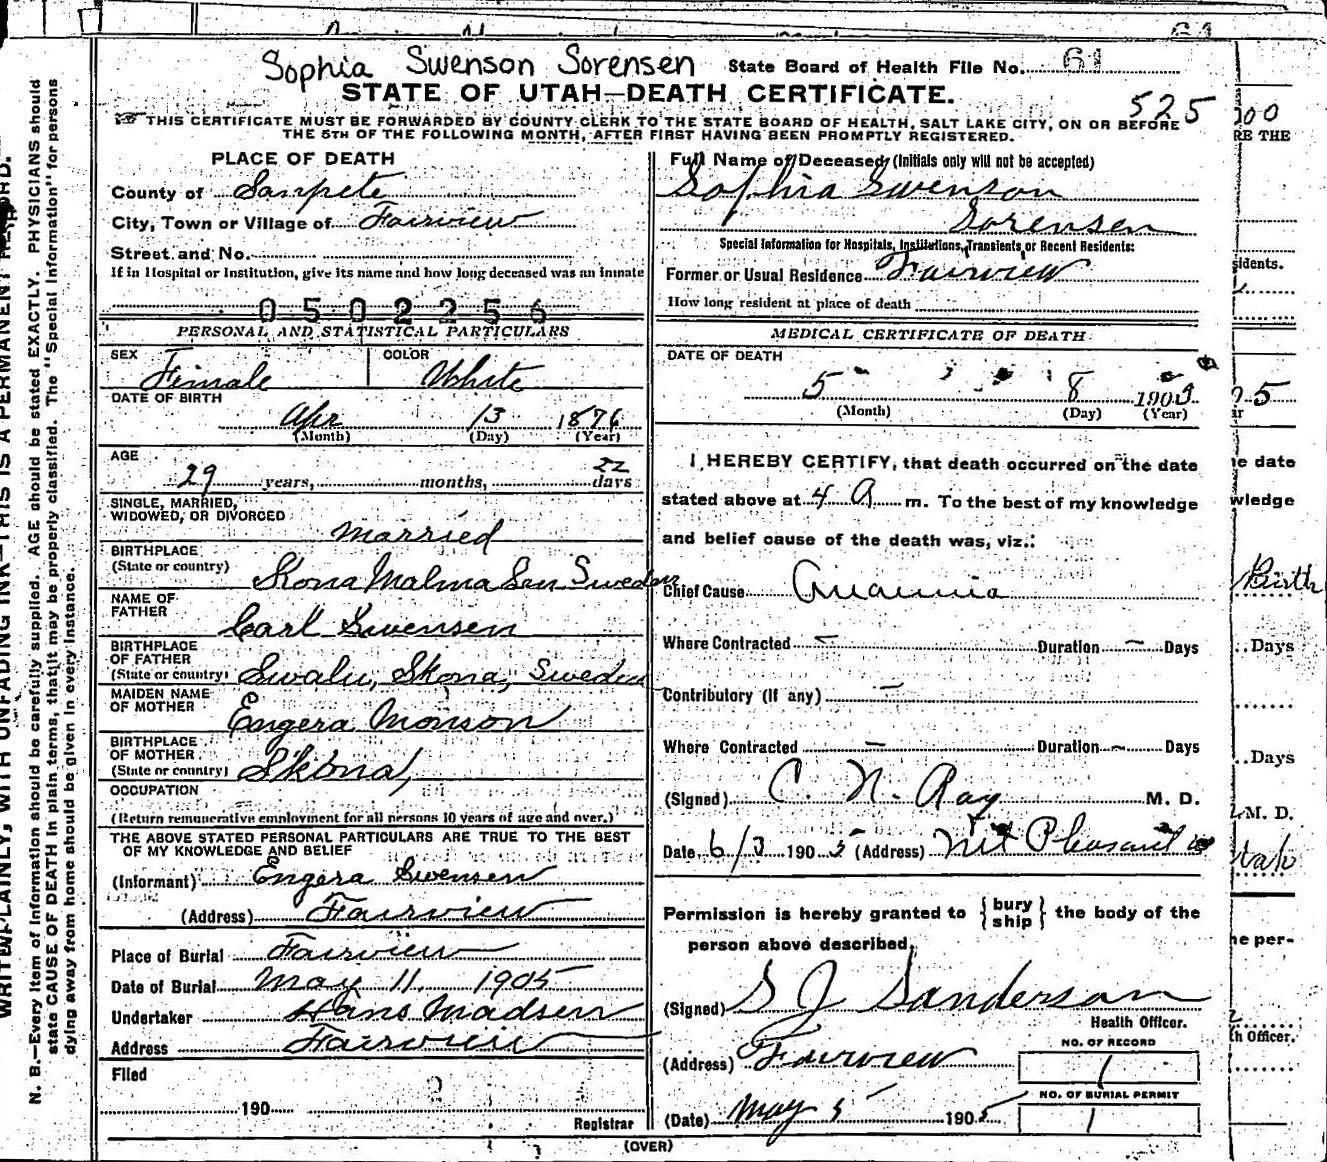 Sophia Swenson Sorensen State Board of Health File No. 61
STATE OF UTAH—DEATH CERTIFICATE.
525
THIS CERTIFICATE MUST BE FORWARDED BY COUNTY CLERK TO THE STATE BOARD OF HEALTH, SALT LAKE CITY, ON OR BEFORE
THE 5TH OF THE FOLLOWING MONTH, AFTER FIRST HAVING BEEN PROMPTLY REGISTERED.
PLACE OF DEATH
County of Sanpete
City, Town or Village of Fairview
Street and No.
If in Hospital or Institution, give its name and how long deceased was an inmate
0502256
PERSONAL AND STATISTICAL PARTICULARS
SEX Female COLOR White
DATE OF BIRTH
Apr 13 1876
(Month) (Day) (Year)
AGE
29 years, months, 22 days
SINGLE, MARRIED,
WIDOWED, OR DIVORCED
Married
BIRTHPLACE
(State or country) Skona Malma Lan Sweden
NAME OF
FATHER Carl Swensen
BIRTHPLACE
OF FATHER
(State or country) Swalu, Skona, Sweden
MAIDEN NAME
OF MOTHER Engera Monson
BIRTHPLACE
OF MOTHER
(State or country) Skona,
OCCUPATION
(Return remunerative employment for all persons 10 years of age and over.)
THE ABOVE STATED PERSONAL PARTICULARS ARE TRUE TO THE BEST
OF MY KNOWLEDGE AND BELIEF
(Informant) Engera Swensen
(Address) Fairview
Place of Burial Fairview
Date of Burial May 11. 1905
Undertaker Hans Madsen
Address Fairview
Filed
190
Registrar
Full Name of Deceased (Initials only will not be accepted)
Sophia Swenson
Sorensen
Special Information for Hospitals, Institutions, Transients, or Recent Residents:
Former or Usual Residence Fairview
How long resident at place of death
MEDICAL CERTIFICATE OF DEATH
DATE OF DEATH
5 8 1905
(Month) (Day) (Year)
I HEREBY CERTIFY, that death occurred on the date
stated above at 4 A m. To the best of my knowledge
and belief cause of the death was, viz.:
Chief Cause Anaemia
Where Contracted — Duration — Days
Contributory (If any) —
Where Contracted — Duration — Days
(Signed) C. N. Ray M. D.
Date 6/3 1905 (Address) Mt Pleasant
Permission is hereby granted to { bury ship } the body of the
person above described,
(Signed) S J Sanderson
Health Officer.
(Address) Fairview
NO. OF RECORD
1
NO. OF BURIAL PERMIT
1
(Date) May 5 1905
(OVER)
WRITE PLAINLY, WITH UNFADING INK—THIS IS A PERMANENT RECORD.
N. B.—Every item of information should be carefully supplied. AGE should be stated EXACTLY. PHYSICIANS should
state CAUSE OF DEATH in plain terms, that it may be properly classified. The "Special Information" for persons
dying away from home should be given in every instance.
00
RE THE
sidents.
5
e date
wledge
Birth
Days
Days
M. D.
tah
e per-
h Officer.